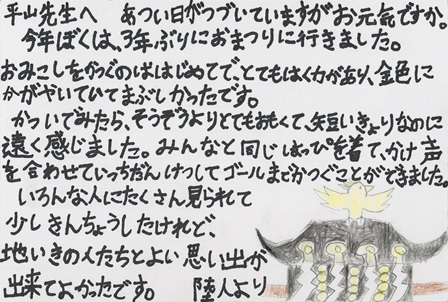 平山先生へ　あつい日がつづいていますがお元気ですか。
今年ぼくは、3年ぶりにおまつりに行きました。
おみこしをかつぐのははじめてで、とてもはく力があり、金色に
かがやいていてまぶしかったです。
かついでみたら、そうぞうよりとてもおもくて、短いきょりなのに
遠く感じました。みんなと同じはっぴを着て、かけ声
を合わせていっちだんけつしてゴールまでかつぐことができました。
いろんな人にたくさん見られて
少しきんちょうしたけれど、
地いきの人たちとよい思い出が
出来てよかったです。　陸人より